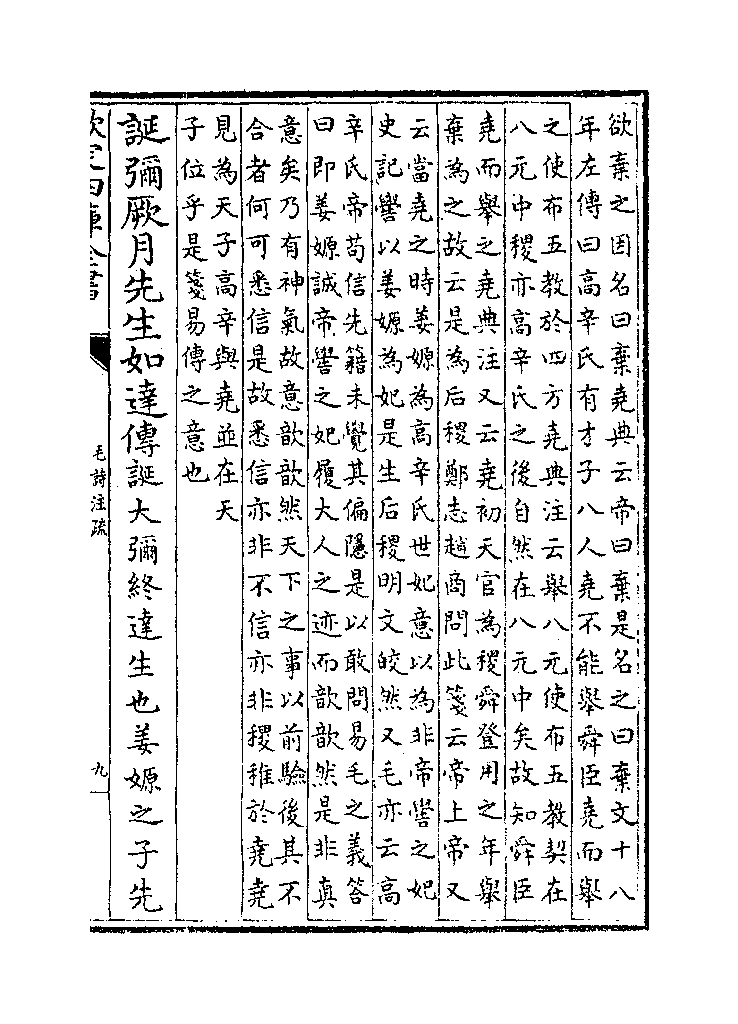 欲棄之因名曰棄堯典云帝曰棄是名之曰棄文十八
年左傳曰高辛氏有才子八人堯不能舉舜臣堯而舉
之使布五教於四方堯典注云舉八元使布五教契在
八元中稷亦高辛氏之後自然在八元中矣故知舜臣
堯而舉之堯典注又云堯初天官為稷舜登用之年舉
棄為之故云是為后稷鄭志趙商問此箋云帝上帝又
云當堯之時姜嫄為高辛氏世妃意以為非帝嚳之妃
史記嚳以姜嫄為妃是生后稷明文皎然又毛亦云高
辛氏帝苟信先籍未覺其偏隱是以敢問易毛之義答
曰即姜嫄誠帝嚳之妃履大人之迹而歆歆然是非真
意矣乃有神氣故意歆歆然天下之事以前驗後其不
合者何可悉信是故悉信亦非不信亦非稷稚於堯堯
見為天子高辛與堯並在天
子位乎是箋易傳之意也
誕彌厥月先生如達傳誕大彌終達生也姜嫄之子先
欽定四庫全書
毛詩注疏
九